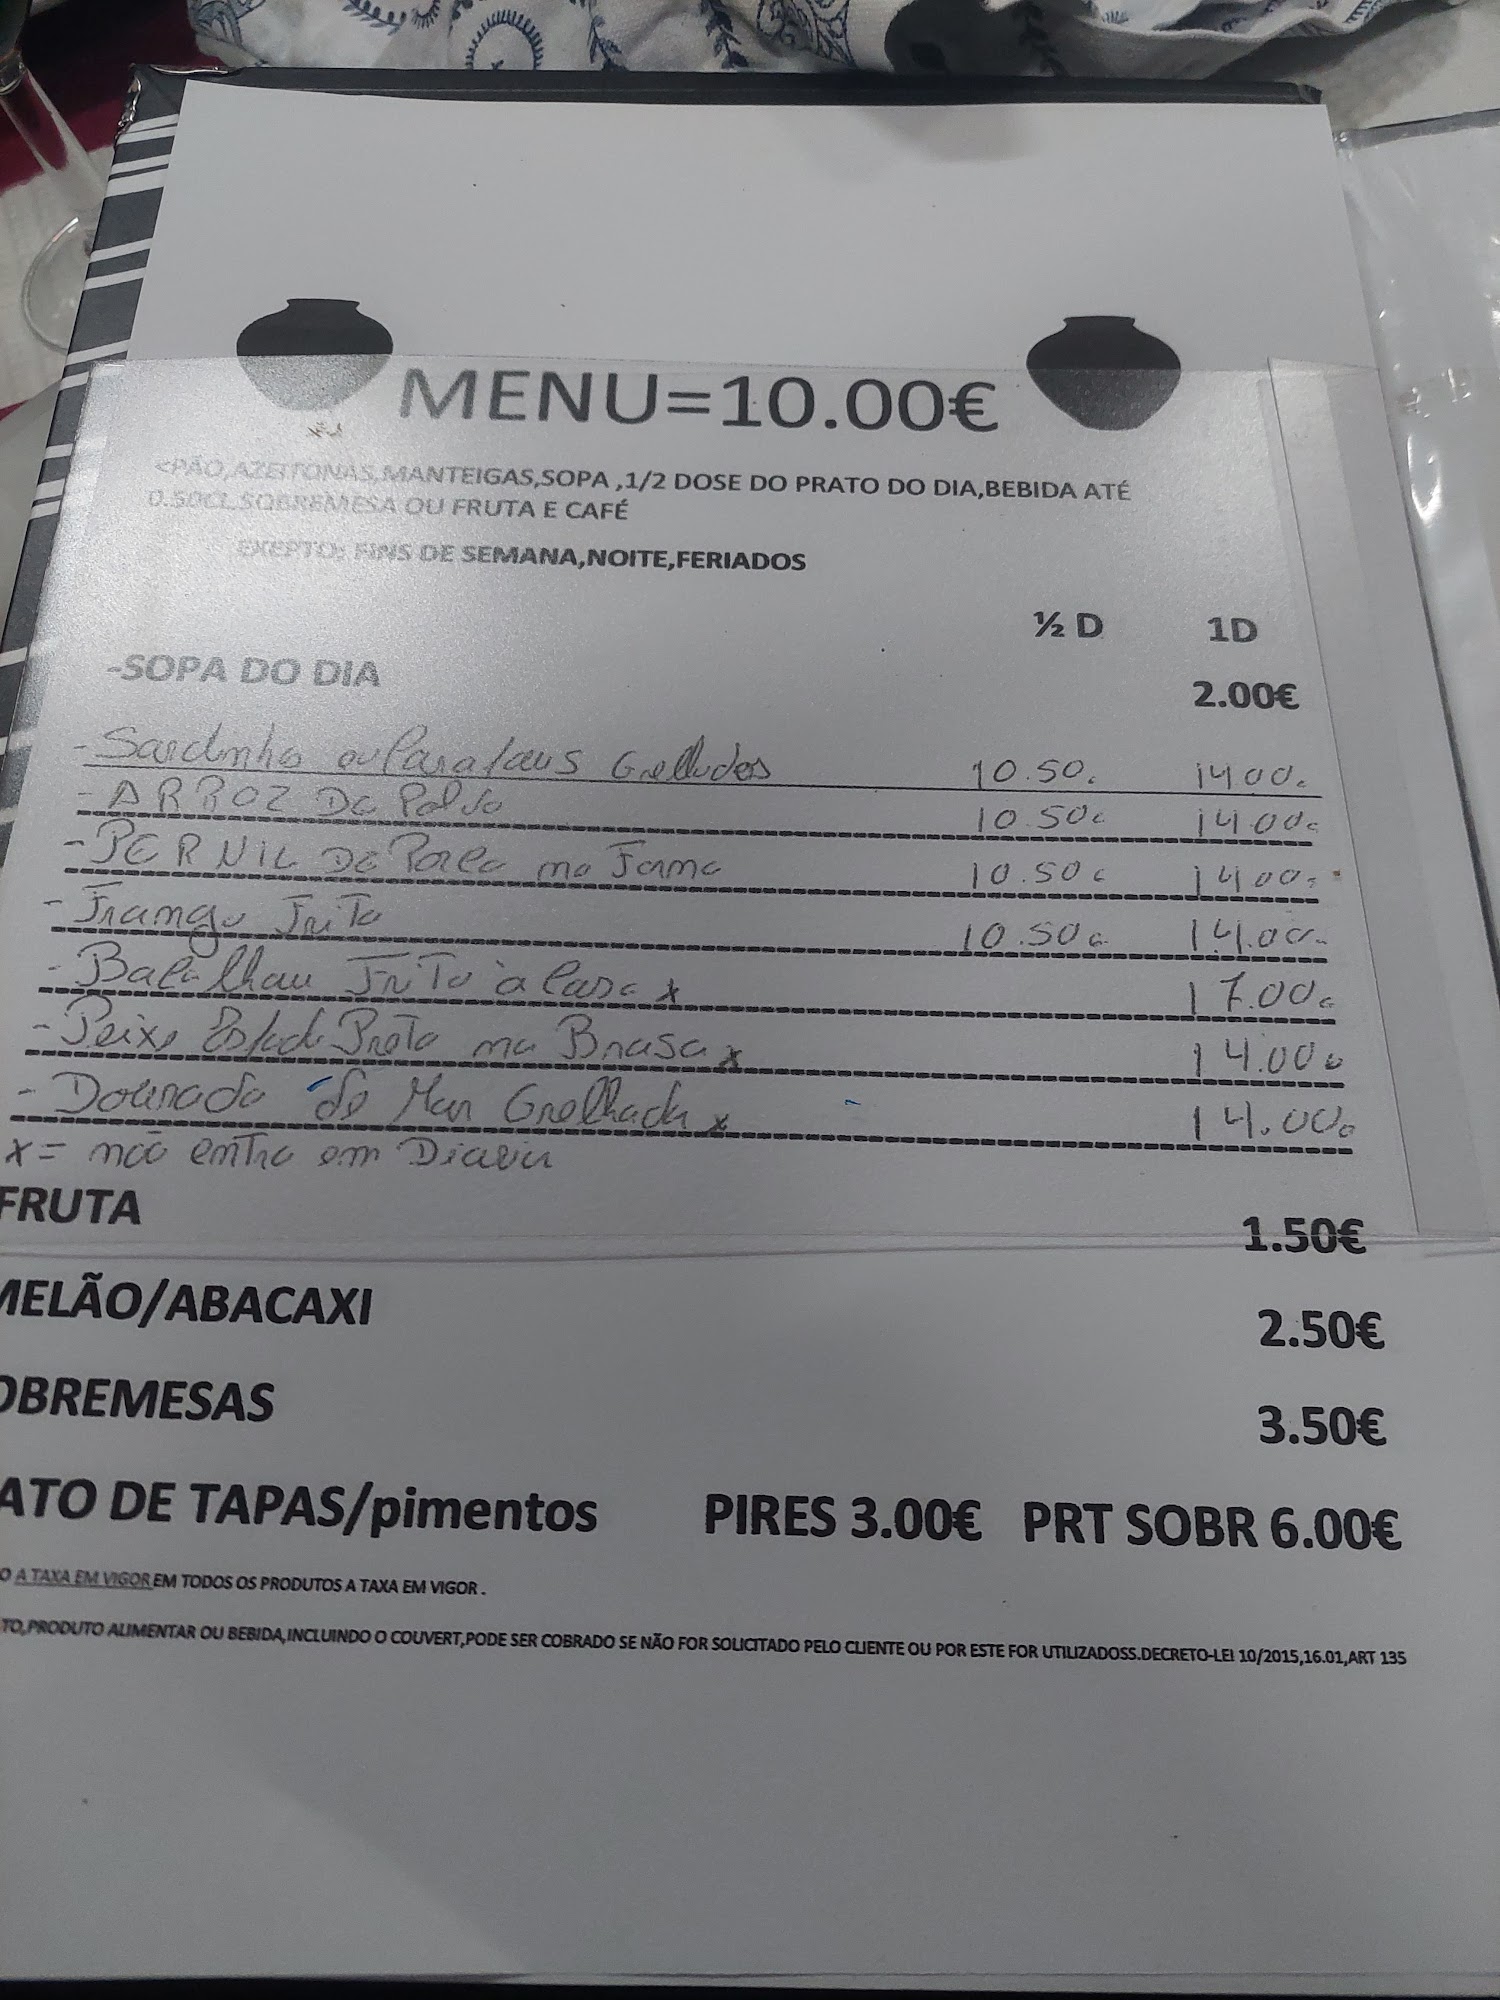 MENU=10.00€
<PÃO,AZEITONAS,MANTEIGAS,SOPA ,1/2 DOSE DO PRATO DO DIA,BEBIDA ATÉ
0.50CL.SOBREMESA OU FRUTA E CAFÉ
EXEPTO: FINS DE SEMANA,NOITE,FERIADOS
½ D 1D
-SOPA DO DIA 2.00€
- Sardinha ou Carapaus Grelhados 10.50€ 14.00€
- ARROZ De Polvo 10.50€ 14.00€
- PERNIL De Porco no Forno 10.50€ 14.00€
- Frango Frito 10.50€ 14.00€
- Bacalhau Frito à Casa x 17.00€
- Peixe Preto na Brasa x 14.00€
- Dourada de Mar Grelhada x 14.00€
x = não entra em Diaria
FRUTA 1.50€
MELÃO/ABACAXI 2.50€
OBREMESAS 3.50€
ATO DE TAPAS/pimentos PIRES 3.00€ PRT SOBR 6.00€
O A TAXA EM VIGOR EM TODOS OS PRODUTOS A TAXA EM VIGOR .
TO,PRODUTO ALIMENTAR OU BEBIDA,INCLUINDO O COUVERT,PODE SER COBRADO SE NÃO FOR SOLICITADO PELO CLIENTE OU POR ESTE FOR UTILIZADOSS.DECRETO-LEI 10/2015,16.01,ART 135